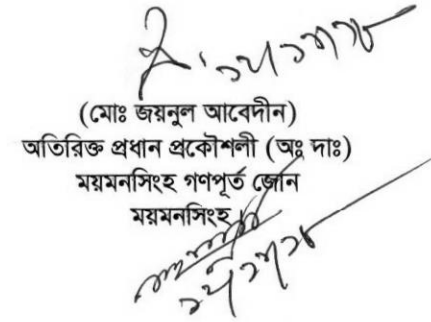 (মোঃ জয়নুল আবেদীন)
অতিরিক্ত প্রধান প্রকৌশলী (অঃ দাঃ)
ময়মনসিংহ গণপূর্ত জোন
ময়মনসিংহ।